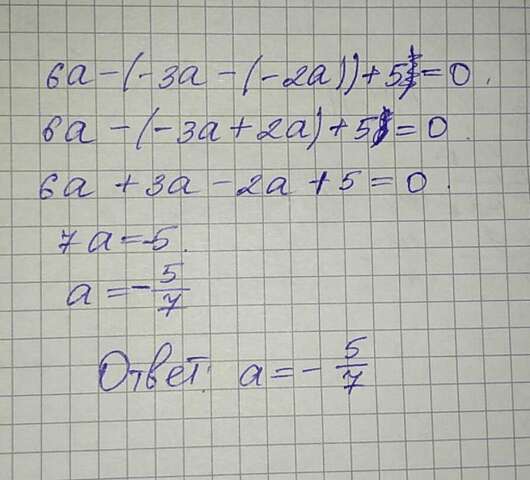 6a-(-3a-(-2a))+5=0.
6a-(-3a+2a)+5=0.
6a+3a-2a+5=0.
7a=-5.
a=-5/7
Ответ: a=-5/7